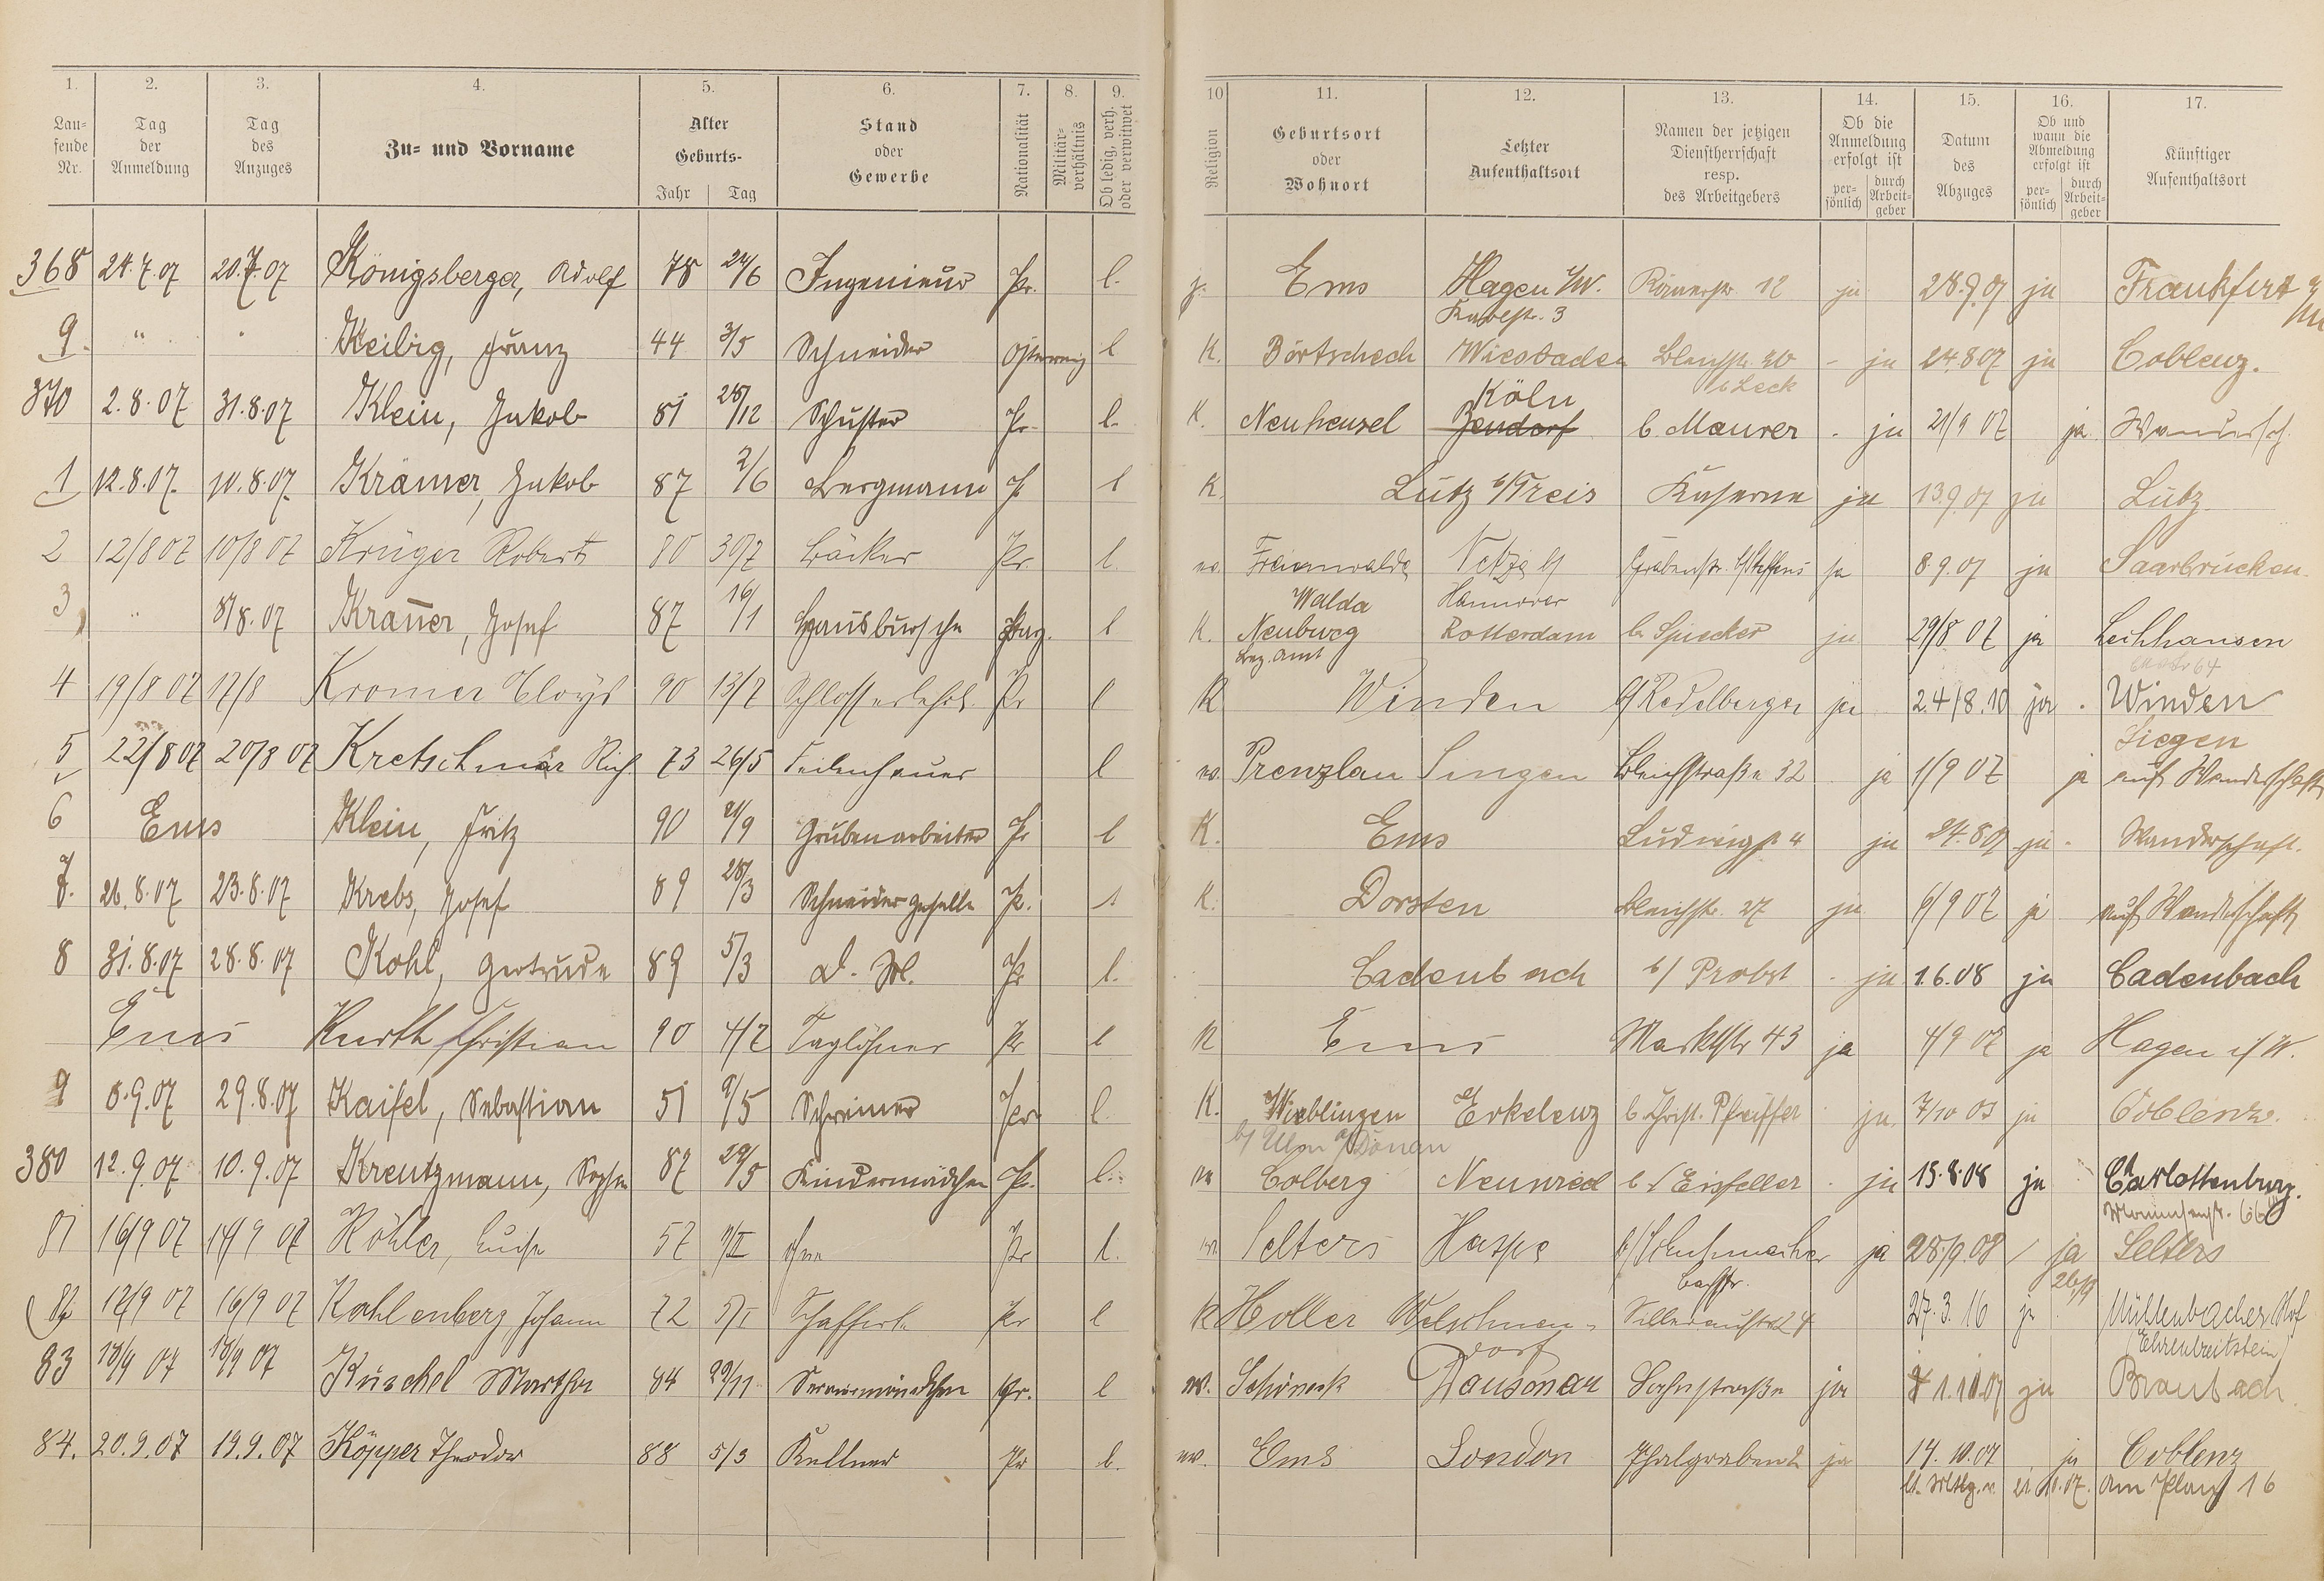 1. 2. 3. 4. 5. 6. 7. 8. 9. 10 11. 12. 13. 14. 15. 16. 17.
Laufende Nr. | Tag der Anmeldung | Tag des Anzuges | Zu- und Vorname | Alter Geburts- Jahr Tag | Stand oder Gewerbe | Nationalität | Militärverhältnis | Ob ledig, verh. oder verwitwet | Religion | Geburtsort oder Wohnort | Letzter Aufenthaltsort | Namen der jetzigen Dienstherrschaft resp. des Arbeitgebers | Ob die Anmeldung erfolgt ist persönlich durch Arbeitgeber | Datum des Abzuges | Ob und wann die Abmeldung erfolgt ist persönlich durch Arbeitgeber | Künftiger Aufenthaltsort
368 24.7.07 20.7.07 Königsberger, Adolf 78 24/6 Ingenieur Pr. l. j. Ems Hagen i/W. Römerstr. 12 ja 28.9.07 ja Frankfurt a/M
9. " " Keibig, Franz 44 3/5 Schneider l K. Börtschech Wiesbaden Bleichstr. 30 - ja 24.8.07 ja Coblenz.
b Leck
370 2.8.07 31.8.07 Klein, Jakob 81 28/12 Schuster Pr. l. K. Neuheusel Köln Bendorf b. Maurer - ja 21/9 07 ja Wandersch.
1 12.8.07. 10.8.07. Krämer, Jakob 87 2/6 Bergmann P l K. Lütz b/Treis Kaserne ja 13.9.07 ja Lütz
2 12/8 07 10/8 07 Krüger Robert 80 30/7 Bäcker Pr. l. ev. Freienwalde Grabenstr. b/Steffens ja 8.9.07 ja Saarbrücken.
Walda Hannover
3 " 8/8.07 Kraner, Josef 87 16/1 Hausbursche l K. Neuburg Rotterdam b. Spiecker ja 29/8 07 ja Lechhausen
Bez. Amt
4 19/8 07 17/8 Kromer Aloys 90 13/7 Schlosserlehrl. Pr l K Winden b/ Redelberger ja 24/8.10 ja . Winden
5 22/8 07 20/8 07 Kretschmar Rich 73 26/5 Feilenhauer l ev. Prenzlau Singen Bleichstraße 32 ja 1/9 07 ja Siegen auf Wanderschaft
6 Ems Klein, Fritz 90 21/9 Grubenarbeiter Pr l K. Ems Ludwigstr 4 ja 24.8.07 ja - Wanderschaft.
7. 26.8.07 23.8.07 Krebs, Josef 89 28/3 Schneidergeselle Pr. l K. Dorsten Bleichstr. 27 ja 6/9 07 ja auf Wanderschaft
8 31.8.07 28.8.07 Kohl, Gertrude 89 5/3 D. M. Pr l. Cadenbach b/ Probst - ja 1.6.08 ja Cadenbach
Ems Kurth Christian 90 4/7 Taglöhner Pr l K Ems Marktstr 43 ja 4/9 07 ja Hagen i/W.
9 29.8.07 Kaifel, Sebastian 51 9/5 Schreiner l. K. Wieblingen Erkelenz b. Christ. Pfeiffer - ja. ja Coblenz.
b/ Ulm a/Donau
380 12.9.07 10.9.07 Kreutzmann, Sophie 87 29/5 Kindermädchen Pr. l. Colberg Neuwied b/ Eisfeller - ja 15.8.08 ja Charlottenburg.
81 16/9 07 14/9 07 Köhler, Luise 57 ohne Pr l. Selters Haspe ja 28/9.08 / ja Selters
26/9
82 17/9 07 16/9 07 Kahlenberg Johann 72 Pr l K Holler Welschneu-dorf 27.3.16 ja Mühlenbacher Hof (Ehrenbreitstein)
83 18/9 07 18/9 07 Küschel Martha 84 29/11 Pr. l ev. Schöneck Dausenau Bahnstraße ja 1.10.07 ja Braubach.
84. 20.9.07 19.9.07 Köpper Theodor 88 5/3 Kellner Pr l. ev. Ems London Pfahlgraben ja 14.10.07 ja Coblenz
21.10.07. am Plan 16